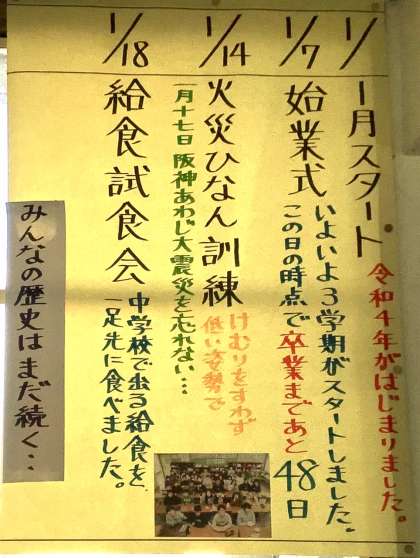 1/1
1月スタート
令和4年がはじまりました。
1/7
始業式
いよいよ3学期がスタートしました。
この日の時点で卒業まであと48日
1/14
火災ひなん訓練
けむりをすわず
低い姿勢で
一月十七日阪神あわじ大震災を忘れない…
1/18
給食試食会
中学校で出る給食を、
一足先に食べました。
みんなの歴史はまだ続く…